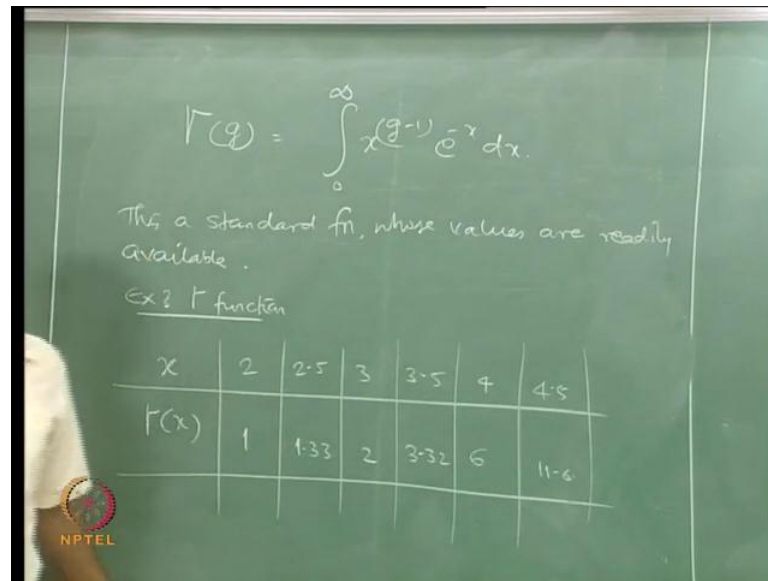 Γ(g) = ∫₀^∞ x^(g-1) e^-x dx.
This a standard fn, whose values are readily
available.
Ex: Γ function
x 2 2.5 3 3.5 4 4.5
Γ(x) 1 1.33 2 3.32 6 11.6
NPTEL